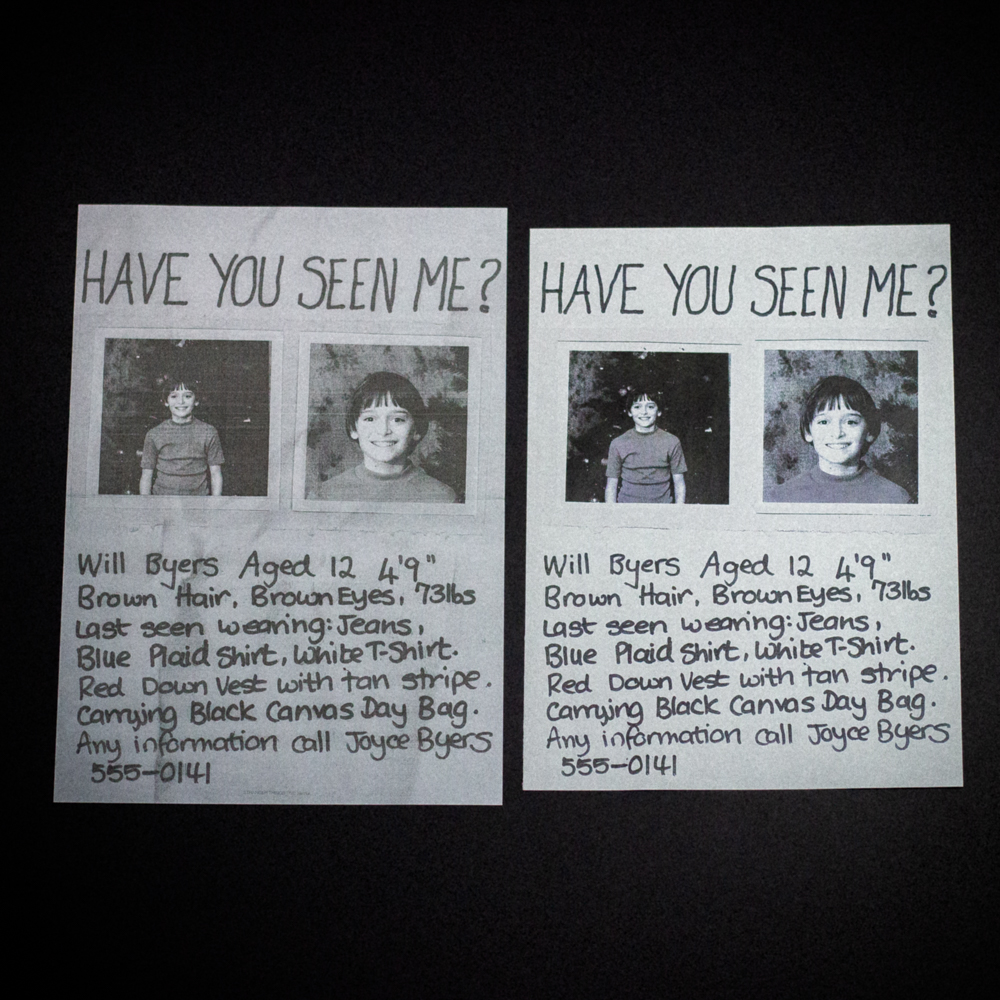 HAVE YOU SEEN ME?
Will Byers Aged 12 4'9"
Brown Hair, Brown Eyes, 73lbs
Last seen wearing: Jeans,
Blue Plaid Shirt, White T-Shirt.
Red Down Vest with tan stripe.
Carrying Black Canvas Day Bag.
Any information call Joyce Byers
555-0141
HAVE YOU SEEN ME?
Will Byers Aged 12 4'9"
Brown Hair, Brown Eyes, 73lbs
Last seen wearing: Jeans,
Blue Plaid Shirt, White T-Shirt.
Red Down Vest with tan stripe.
Carrying Black Canvas Day Bag.
Any information call Joyce Byers
555-0141